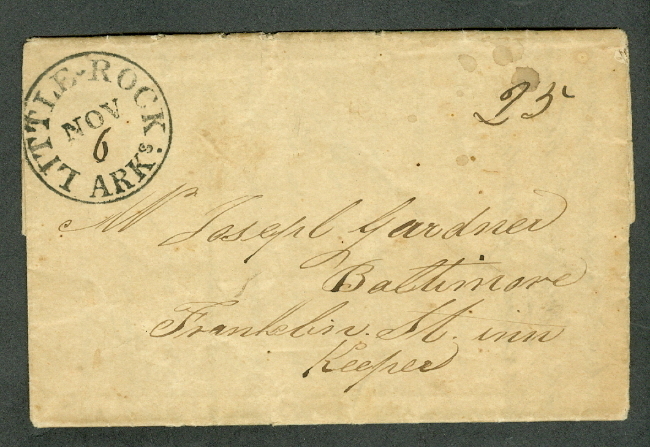 LITTLE-ROCK ARKs.
NOV
6
25
Mr Joseph Gardner
Baltimore
Franklin St. inn
Keeper